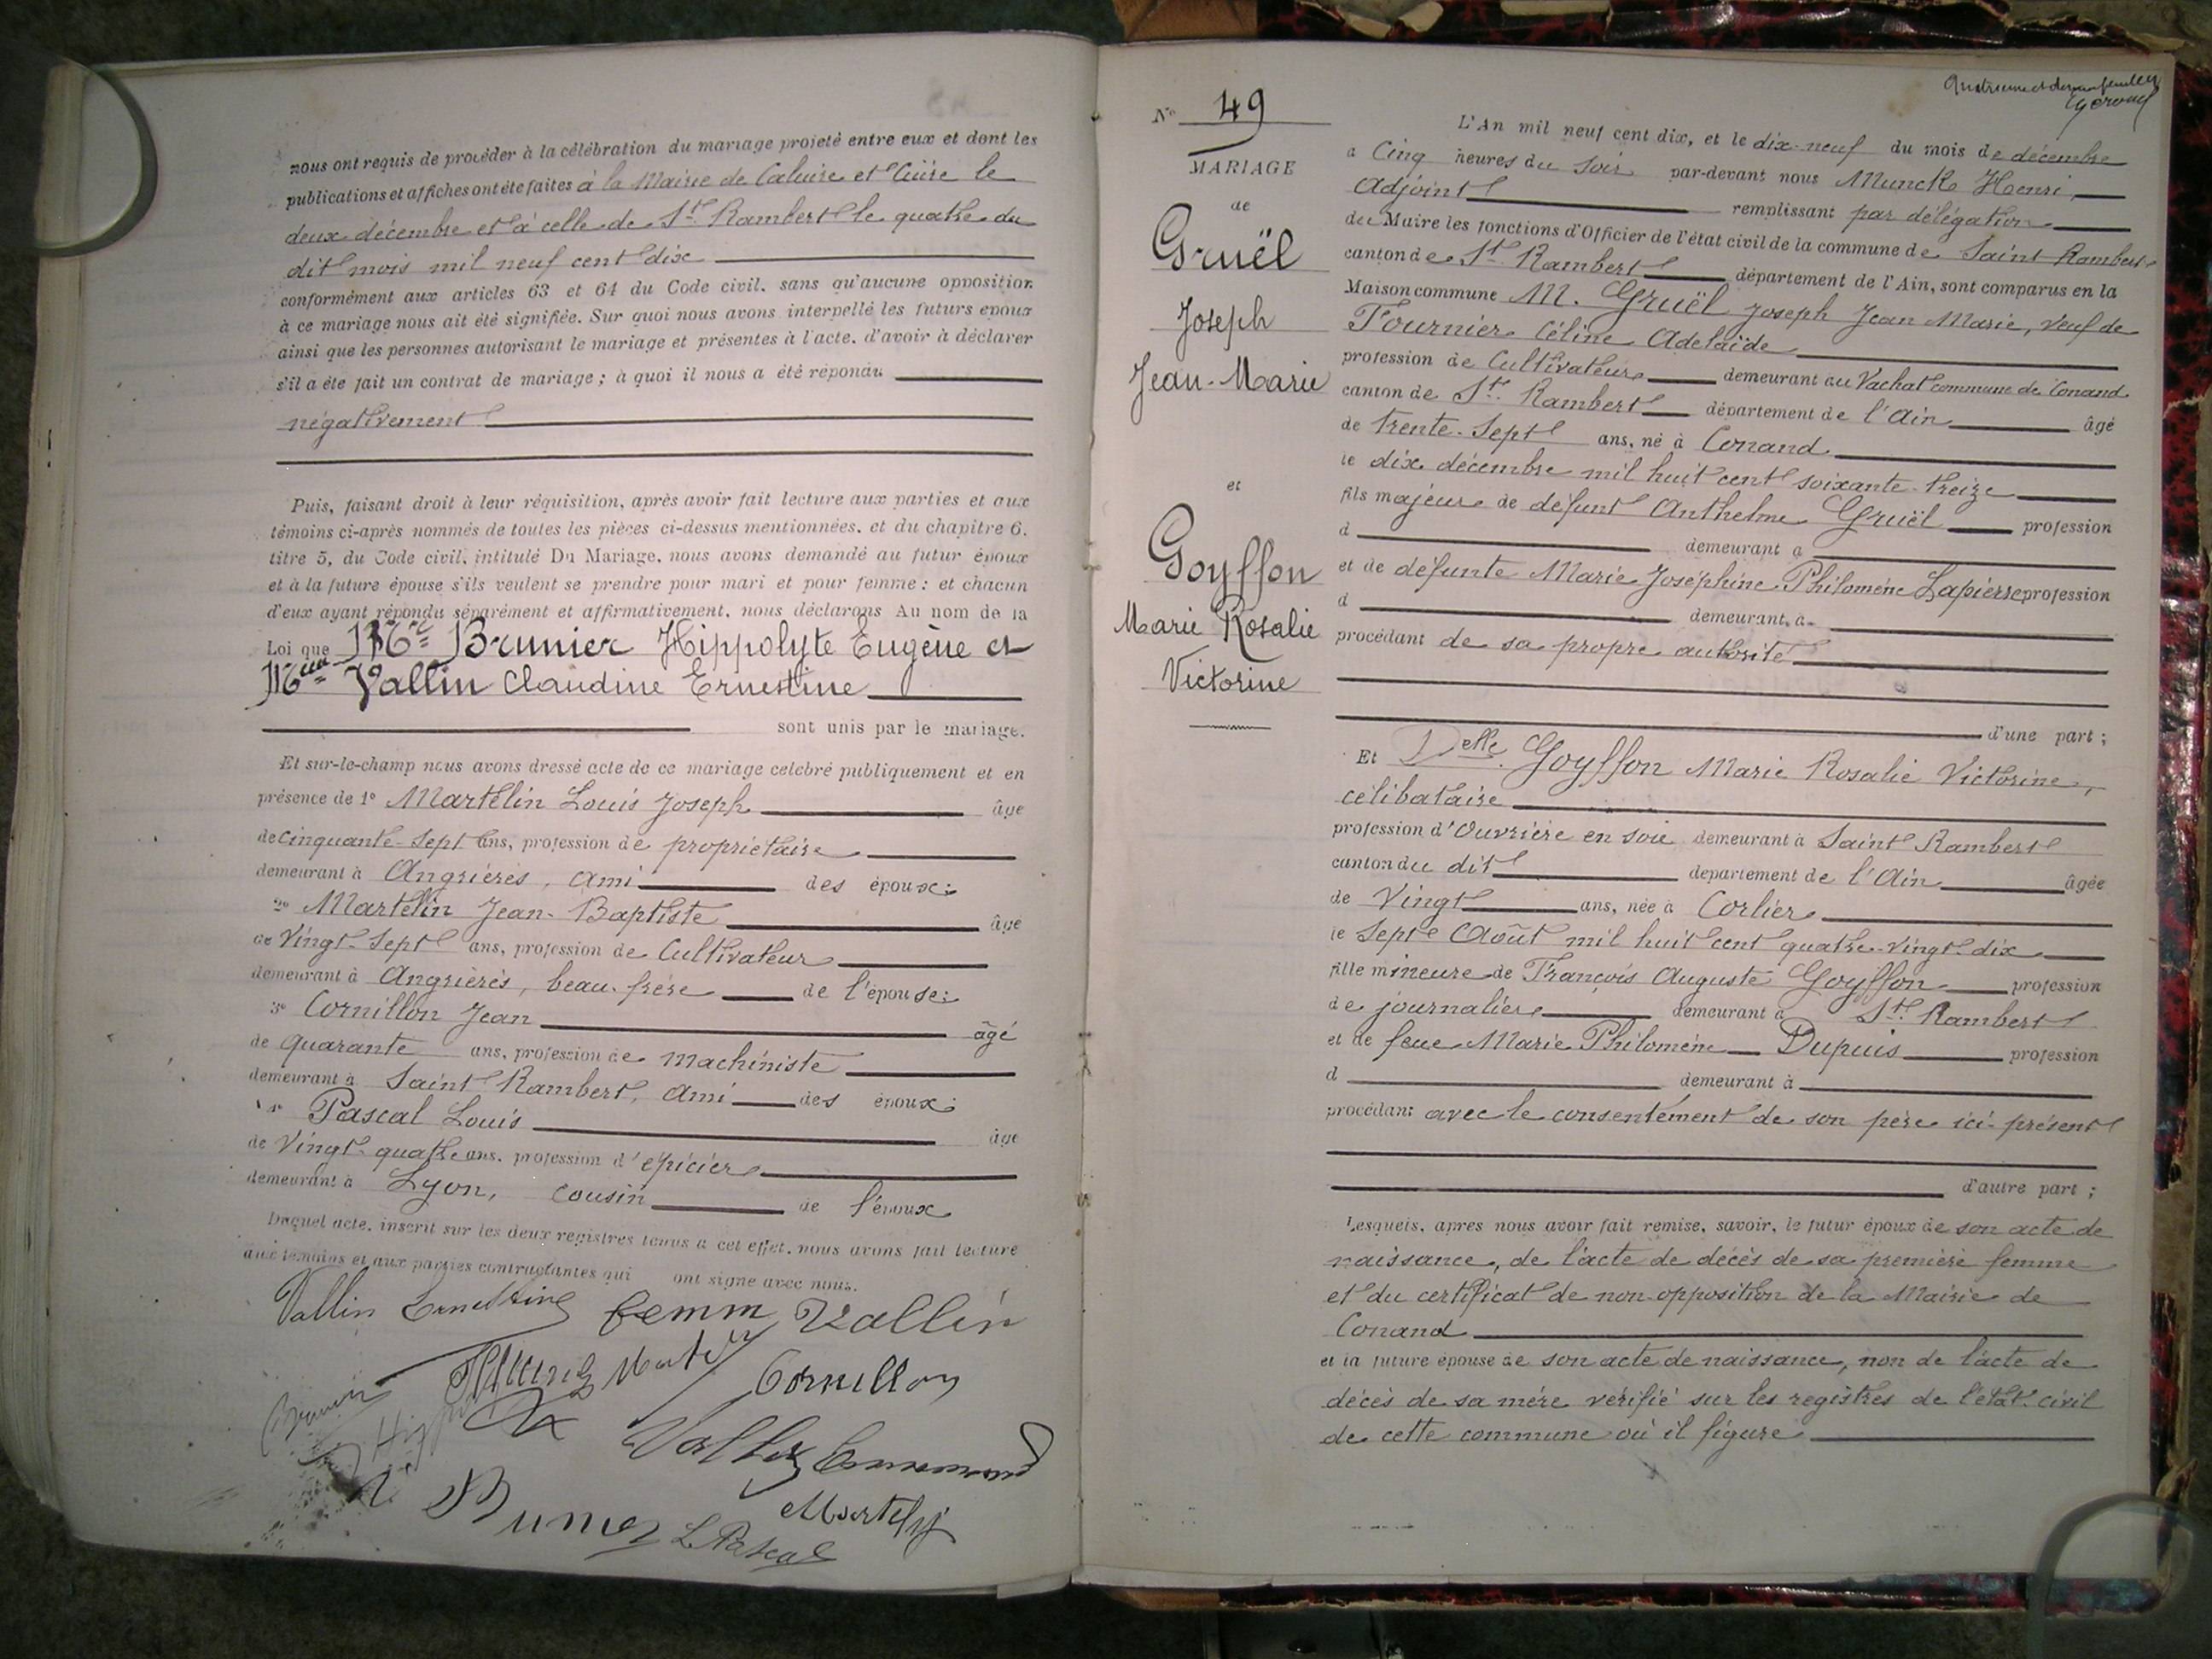 nous ont requis de procéder à la célébration du mariage projeté entre eux et dont les
publications et affiches ont été faites à la Mairie de Caluire et Cuire le
deux décembre et à celle de St. Rambert le quatre du
dit mois mil neuf cent dix
conformément aux articles 63 et 64 du Code civil, sans qu'aucune opposition
à ce mariage nous ait été signifiée. Sur quoi nous avons interpellé les futurs époux
ainsi que les personnes autorisant le mariage et présentes à l'acte, d'avoir à déclarer
s'il a été fait un contrat de mariage ; à quoi il nous a été répondu
négativement
Puis, faisant droit à leur réquisition, après avoir fait lecture aux parties et aux
témoins ci-après nommés de toutes les pièces ci-dessus mentionnées, et du chapitre 6,
titre 5, du Code civil, intitulé Du Mariage, nous avons demandé au futur époux
et à la future épouse s'ils veulent se prendre pour mari et pour femme : et chacun
d'eux ayant répondu séparément et affirmativement, nous déclarons Au nom de la
Loi que Mr Brunier Hippolyte Eugène et
Melle Vallin Claudine Ernestine
sont unis par le mariage.
Et sur-le-champ nous avons dressé acte de ce mariage célébré publiquement et en
présence de 1° Martelin Louis Joseph âgé
de cinquante-sept ans, profession de propriétaire
demeurant à Angrières, ami des époux;
2° Martelin Jean-Baptiste âgé
de Vingt-sept ans, profession de Cultivateur
demeurant à Angrières, beau-frère de l'épouse;
3° Cornillon Jean âgé
de quarante ans, profession de machiniste
demeurant à Saint Rambert, ami des époux;
4° Pascal Louis âgé
de Vingt-quatre ans, profession d'épicier
demeurant à Lyon, cousin de l'époux
Duquel acte, inscrit sur les deux registres tenus à cet effet, nous avons fait lecture
aux témoins et aux parties contractantes qui ont signé avec nous.
Vallin Ernestine femm Vallin
Cornillon
Brunier
L Pascal
N° 49
MARIAGE
de
Gruël
Joseph
Jean-Marie
et
Goyffon
Marie Rosalie
Victorine
L'An mil neuf cent dix, et le dix-neuf du mois de décembre
à Cinq heures du soir par-devant nous Munck Henri,
Adjoint remplissant par délégation
du Maire les fonctions d'Officier de l'état civil de la commune de Saint Rambert
canton de St. Rambert département de l'Ain, sont comparus en la
Maison commune M. Gruël Joseph Jean Marie, veuf de
Fournier Céline Adelaïde
profession de Cultivateur demeurant au Vachat commune de Conand
canton de St. Rambert département de l'Ain âgé
de trente-sept ans, né à Conand
le dix décembre mil huit cent soixante-treize
fils majeur de défunt Anthelme Gruël profession
d demeurant à
et de défunte Marie Joséphine Philomène Lapierre profession
d demeurant à
procédant de sa propre autorité
d'une part ;
Et Delle. Goyffon Marie Rosalie Victorine,
célibataire
profession d'Ouvrière en soie demeurant à Saint Rambert
canton du dit département de l'Ain âgée
de Vingt ans, née à Corlier
le Sept Août mil huit cent quatre-vingt-dix
fille mineure de François Auguste Goyffon profession
de journalier demeurant à St. Rambert
et de feue Marie Philomène Dupuis profession
d demeurant à
procédant avec le consentement de son père ici-présent
d'autre part ;
Lesquels, après nous avoir fait remise, savoir, le futur époux de son acte de
naissance, de l'acte de décès de sa première femme
et du certificat de non-opposition de la Mairie de
Conand
et la future épouse de son acte de naissance, non de l'acte de
décès de sa mère vérifié sur les registres de l'état-civil
de cette commune où il figure